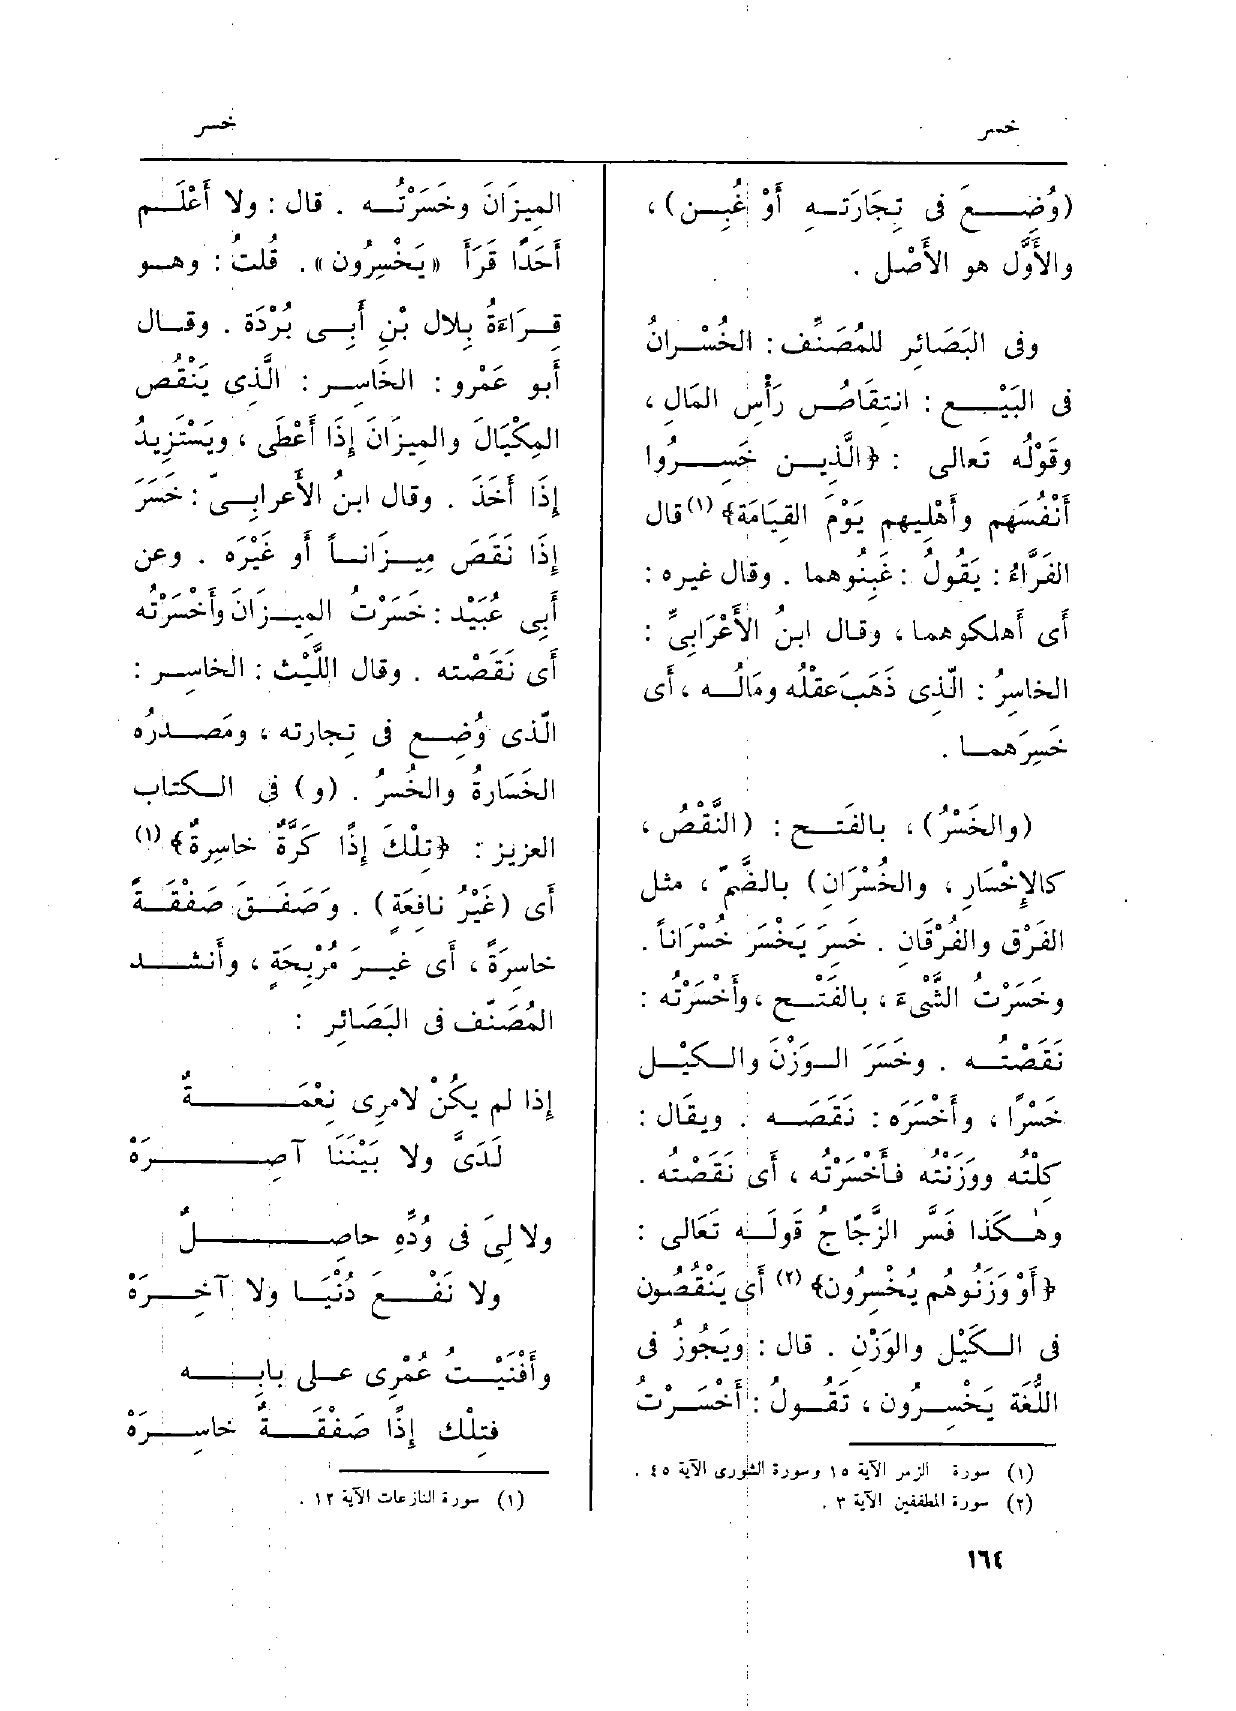 خسر
خسر
(وُضِع فى تِجَارَتِه أَوْ غُبِن)،
والأَوَّل هو الأَصْل .
وفى البَصَائِر للمُصَنِّف : الخُسْرانُ
فى البَيْع : انتِقَاصُ رَأْسِ المَالِ،
وقَوْلُه تَعالى : ﴿الَّذِين خَسِرُوا
أَنْفُسَهم وأَهْلِيهم يَوْمَ القِيَامَة﴾ (١) قال
الفَرَّاءُ : يَقُولُ : غَبِنُوهما . وقال غيره :
أَى أَهلكوهما، وقال ابنُ الأَعْرَابِىِّ :
الخاسِرُ : الّذِى ذَهَبَ عقْلُه ومَالُه ، أَى
خَسِرَهما .
(والخَسْرُ) ، بالفَتح : (النَّقْصُ،
كالإِخْسَارِ ، والخُسْرَان) بالضَّمّ ، مثل
الفَرْق والفُرْقَانِ . خَسِرَ يَخْسَر خُسْرَاناً .
وخَسَرْتُ الشَّىْءَ ، بالفَتْح ، وأَخْسَرْتُه :
نَقَصْتُه . وخَسَرَ الوَزْنَ والكَيْل
خَسْرًا ، وأَخْسَرَه : نَقَصَه . ويقال :
كِلْتُه ووَزَنْتُه فأَخْسَرْتُه ، أَى نَقَصْتُه .
وهٰكَذا فَسَّر الزَّجّاجُ قَولَه تَعَالى :
﴿أَوْ وَزَنُوهُم يُخْسِرُون﴾ (٢) أَى يَنْقُصُون
فى الكَيْل والوَزْنِ . قال : ويَجُوزُ فى
اللُّغَة يَخْسِرُون ، تَقُولُ : أَخْسَرْتُ
(١) سورة الزمر الآية ١٥ وسورة الشورى الآية ٤٥ .
(٢) سورة المطففين الآية ٣ .
الميِزَانَ وخَسَرْتُه . قال : ولا أَعْلَم
أَحَدًا قَرَأَ «يَخْسِرُون» . قُلتُ : وهو
قِرَاءَةُ بِلال بْنِ أَبِى بُرْدَة . وقال
أَبو عَمْرو : الخَاسِر : الَّذِى يَنْقُص
المِكْيَالَ والمِيزَانَ إِذَا أَعْطَى ، ويَسْتَزِيدُ
إِذَا أَخَذَ . وقال ابنُ الأَعرابىّ : خَسَرَ
إِذَا نَقَصَ مِيزَاناً أَو غَيْرَه . وعن
أَبِى عُبَيْد : خَسَرْتُ المِيزَانَ وأَخْسَرْتُه
أَى نَقَصْتُه . وقال اللَّيْث : الخاسِر :
الّذى وُضِع فى تِجارته ، ومَصدرُه
الخَسَارَةُ والخُسْرُ . (و) فى الكتاب
العزيز : ﴿تِلْكَ إِذًا كَرَّةٌ خاسِرةٌ﴾ (١)
أَى (غَيْرُ نافِعَةٍ) . وَصَفَقَ صَفْقَةً
خاسِرَةً ، أَى غيرَ مُرْبِحَةٍ ، وأَنشد
المُصَنِّف فى البَصَائِر :
إِذا لم يكُنْ لامرِئ نِعْمَةٌ
لَدَىَّ ولا بَيْنَنَا آصِرَهْ
ولا لِىَ فى وُدِّهِ حاصِلٌ
ولا نَفْعَ دُنْيَا ولا آخِرَهْ
وأَفْنَيْتُ عُمْرِى على بابِه
فتِلْك إِذًا صَفْقَةٌ خاسِرَهْ
(١) سورة النازعات الآية ١٢ .
١٦٤